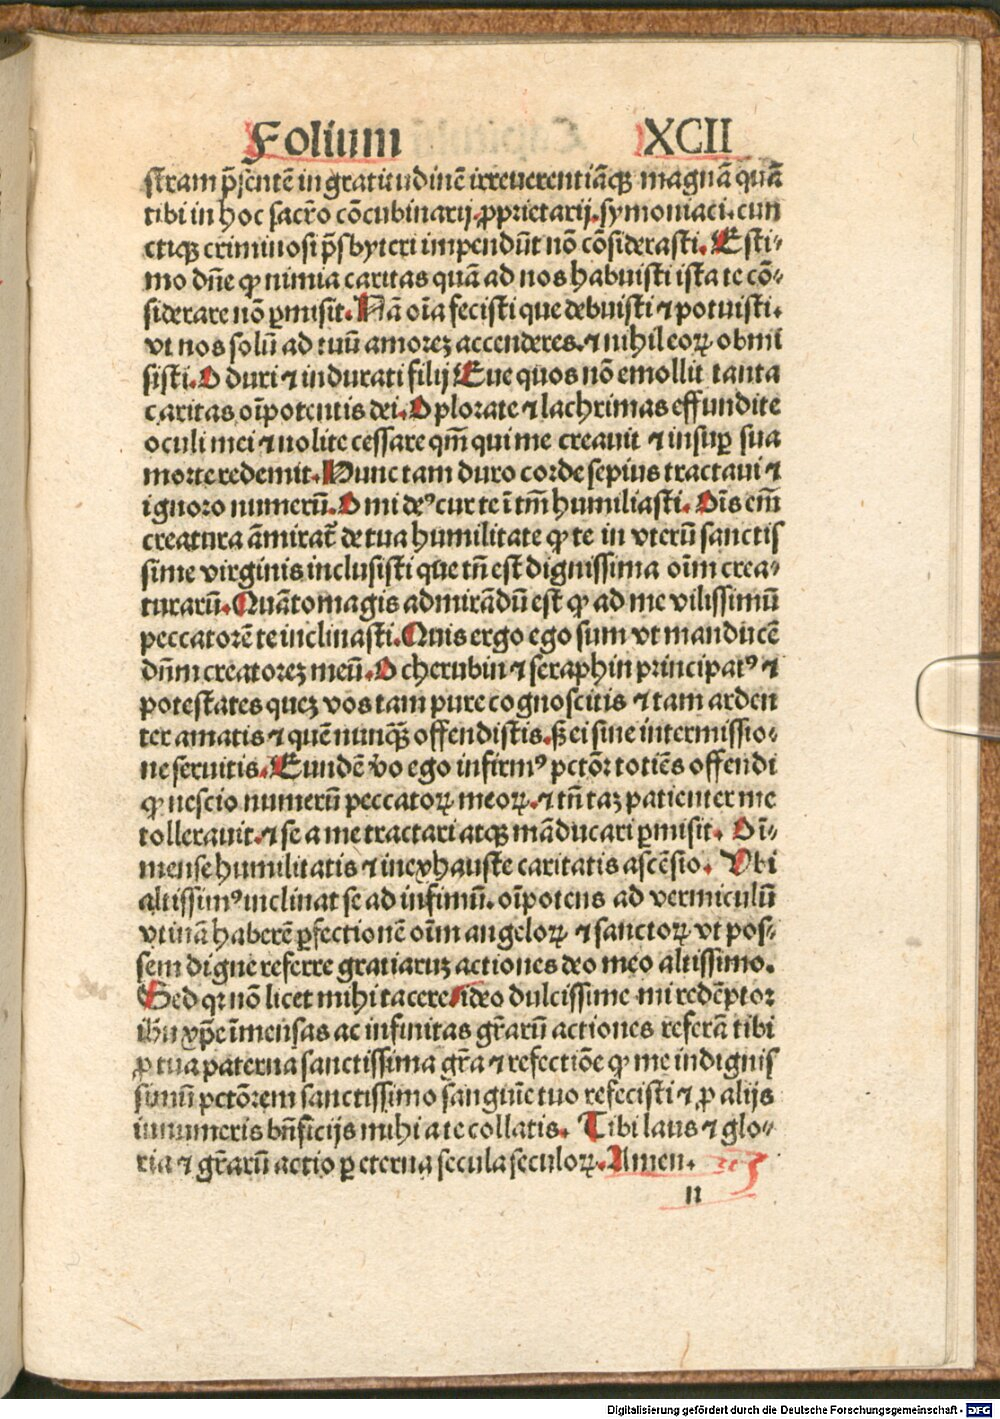 Folium XCII
stram p̃sentē in gratitudinē irreuerentiāq̃ magnā quā
tibi in hoc sacro cōcubinarij. ꝓprietarij. symoniaci. cun
ctiq̃ criminosi p̃sbyteri impendūt nō cōsiderasti. Esti⸗
mo dñe ꝙ nimia caritas quā ad nos habuisti ista te cō⸗
siderare nō ꝑmisit. Nā oīa fecisti que debuisti ⁊ potuisti.
vt nos solū ad tuū amorez accenderes. ⁊ nihil eoꝝ obmi
sisti. O duri ⁊ indurati filij Eue quos nō emollit tanta
caritas oīpotentis dei. O plorate ⁊ lachrimas effundite
oculi mei ⁊ nolite cessare qm̄ qui me creauit ⁊ insuꝑ sua
morte redemit. Hunc tam duro corde sepius tractaui ⁊
ignoro numerū. O mi deꝰ cur te ī tm̄ humiliasti. Oīs em̄
creatura āmirat̃ de tua humilitate ꝙ te in vterū sanctis
sime virginis inclusisti que tñ est dignissima oīm crea⸗
turarū. Quāto magis admirādū est ꝙ ad me vilissimū
peccatorē te inclinasti. Quis ergo ego sum vt manducē
dñm creatorez meū. O cherubin ⁊ seraphin principatꝰ ⁊
potestates quez vos tam pure cognoscitis ⁊ tam arden
ter amatis ⁊ quē nunq̃ offendistis. sꝫ ei sine intermissio⸗
ne seruitis. Eundē v̓o ego infirmꝰ pctōr totiēs offendi
ꝙ nescio numerū peccatoꝝ meoꝝ. ⁊ tñ taꝫ patienter me
tollerauit. ⁊ se a me tractari atq̃ māducari ꝑmisit. O ī⸗
mense humilitatis ⁊ inexhauste caritatis ascēsio. Vbi
altissimꝰ inclinat se ad infimū. oīpotens ad vermiculū
vtinā haberē ꝑfectionē oīm angeloꝝ ⁊ sanctoꝝ vt pos⸗
sem digne referre gratiaruz actiones deo meo altissimo.
Sed qꝛ nō licet mihi tacere ideo dulcissime mi redēptor
ihu xp̃e īmensas ac infinitas gr̃arū actiones referā tibi
ꝓ tua paterna sanctissima gr̃a ⁊ refectiōe ꝙ me indignis
simū pctōrem sanctissimo sanguīe tuo refecisti ⁊ ꝓ alijs
innumeris bñficijs mihi a te collatis. Tibi laus ⁊ glo⸗
ria ⁊ gr̃arū actio ꝑ eterna secula seculoꝝ. Amen.
n
Digitalisierung gefördert durch die Deutsche Forschungsgemeinschaft - DFG